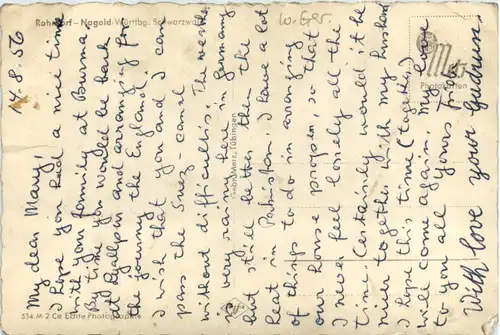 Rohrdorf - Nagold/Württbg. Schwarzwald
W. Ger.
14.8.56
My dear Mary!
I hope you had a nice time
with your family at Burma
By time you would be back
at Lyallpur and arranging for
the journey to England.
I wish that you and I can
pass the Suez-canal
without difficultis. The weather
is very rainy here in Germany
but still better then the
heat in Pakistan. I have a lot
of things to do in arranging
our house propper, so that
I never feel lonely all the
time. Certainly would it be
nicer together with my husband
I hope this time (together)
will come again. My love
to you all yours to a
With love your Gudrun.
Gebr. Metz, Tübingen
Metz
Photokarten
534 M 2 Ce Echte Photographie